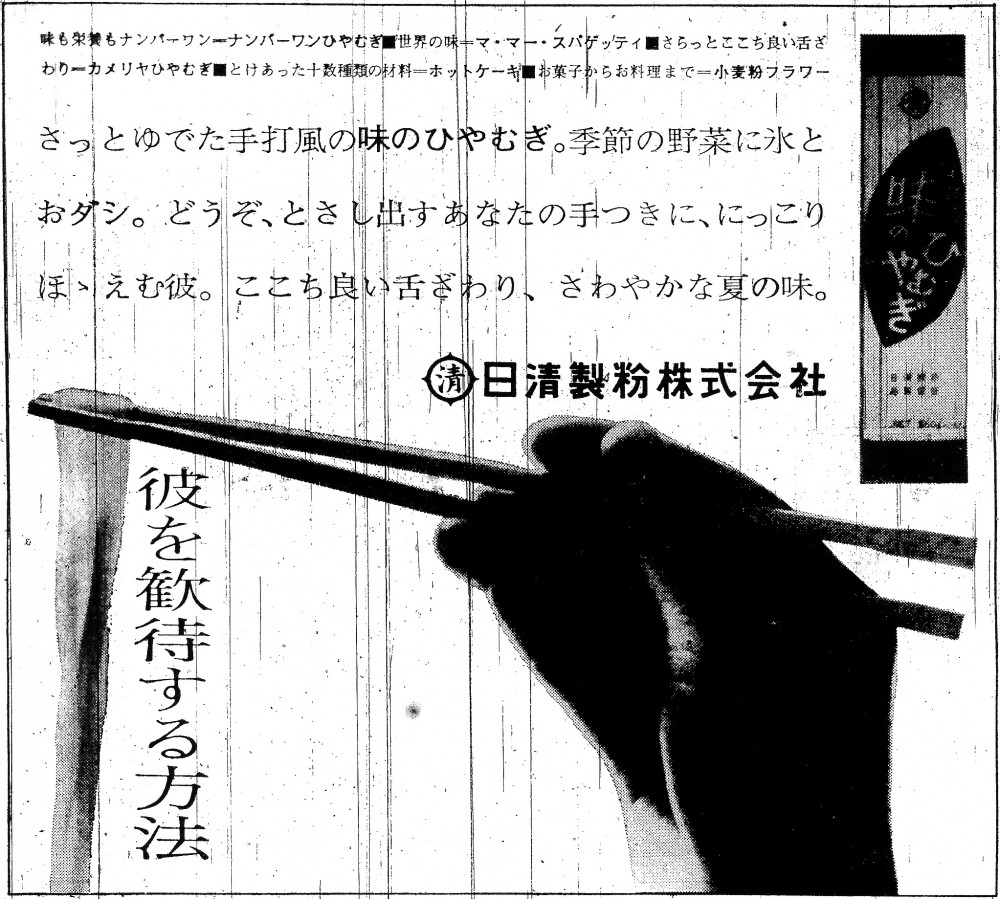 味も栄養もナンバーワン=ナンバーワンひやむぎ■世界の味=マ・マー・スパゲッティ■さらっとここち良い舌ざ
わり=カメリヤひやむぎ■とけあった十数種類の材料=ホットケーキ■お菓子からお料理まで=小麦粉フラワー
さっとゆでた手打風の味のひやむぎ。季節の野菜に氷と
おダシ。どうぞ、とさし出すあなたの手つきに、にっこり
ほゝえむ彼。ここち良い舌ざわり、さわやかな夏の味。
清 日清製粉株式会社
彼を歓待する方法
清
味の
ひやむぎ